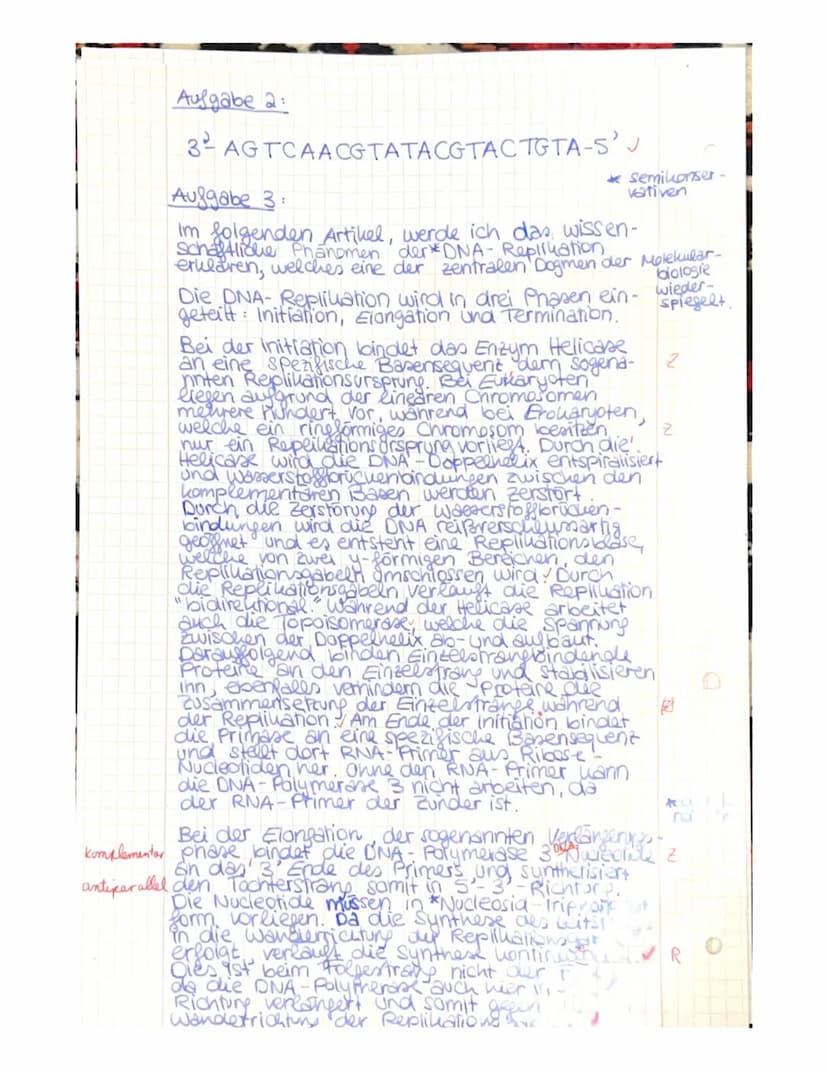 Aufgabe 2:
3'- AGTCAACGTATACGTACTGTA-5' ✓
* semikonser-
vativen
Aufgabe 3:
Im folgenden Artikel, werde ich das wissen-
schaftliche Phänomen der* DNA-Replikation
erklären, welches eine der zentralen Dogmen der Molekular-
biologie
wieder-
spiegelt.
Die DNA-Replikation wird in drei Phasen ein-
geteilt: Initiation, Elongation und Termination.
Bei der Initiation bindet das Enzym Helicase
an eine spezifische Basensequent dem sogena-
Z
nnten Replikationsursprung. Bei Eukaryoten
liegen aufgrund der linearen Chromosomen
mehrere Hundert vor, während bei Prokaryoten,
welche ein ringförmiges Chromosom besitzen,
Z
nur ein Replikationsursprung vorliegt. Durch die
Helicase wird die DNA-Doppelhelix entspiralisiert
und Wasserstoffbrückenbindungen zwischen den
komplementären Basen werden zerstört.
Durch die Zerstörung der Wasserstoffbrücken-
bindungen wird die DNA reißverschlussartig
geöffnet und es entsteht eine Replikationsblase,
welche von zwei y-förmigen Bereichen, den
Replikationsgabeln umschlossen wird. Durch
die Replikationsgabeln verläuft die Replikation
"bidirektional." Während der Helicase arbeitet
auch die Topoisomerase, welche die Spannung
zwischen der Doppelhelix ab- und aufbaut.
Darauffolgend binden Einzelstrangbindende
Proteine an den Einzelstrang und stabilisieren
ihn, ebenfalls verhindern die Proteine die
Zusammensetzung der Einzelstränge während
der Replikation. ✓ Am Ende der Initiation bindet
die Primase an eine spezifische Basensequent
und stellt dort RNA-Primer aus Ribose-
Nucleotiden her. Ohne den RNA-Primer kann
die DNA-Polymerase 3 nicht arbeiten, da
der RNA-Primer der Zünder ist.
Bei der Elongation, der sogenannten Verlängerungs-
komplementär
phase bindet die DNA-Polymerase 3 DNA Nucleotide
Z
an das 3' Ende des Primers und synthetisiert
antiparallel
den Tochterstrang somit in 5'-3'-Richtung.
Die Nucleotide müssen in *Nucleosid-
form vorliegen. Da die Synthese des
in die Wanderrichtung der
erfolgt, verläuft die Synthese ✓
R
Dies ist beim Folgestrang nicht der
da die DNA-Polymerase auch hier in
Richtung verlängert und somit gegen
Wanderrichtung der